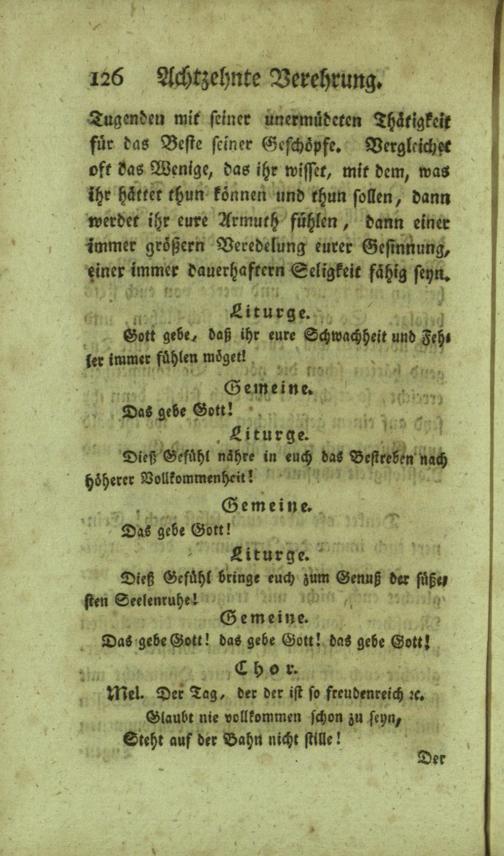 126 Achtzehnte Verehrung.
Tugenden mit seiner unermüdeten Thätigkeit
für das Beste seiner Geschöpfe. Vergleichet
oft das Wenige, das ihr wisset, mit dem, was
ihr hättet thun können und thun sollen, dann
werdet ihr eure Armuth fühlen, dann einer
immer größern Veredelung eurer Gesinnung,
einer immer dauerhaftern Seligkeit fähig seyn.
Liturge.
Gott gebe, daß ihr eure Schwachheit und Feh-
ler immer fühlen möget!
Gemeine.
Das gebe Gott!
Liturge.
Dieß Gefühl nähre in euch das Bestreben nach
höherer Vollkommenheit!
Gemeine.
Das gebe Gott!
Liturge.
Dieß Gefühl bringe euch zum Genuß der süße-
sten Seelenruhe!
Gemeine.
Das gebe Gott! das gebe Gott! das gebe Gott!
Chor.
Mel. Der Tag, der der ist so freudenreich ꝛc.
Glaubt nie vollkommen schon zu seyn,
Steht auf der Bahn nicht stille!
Der